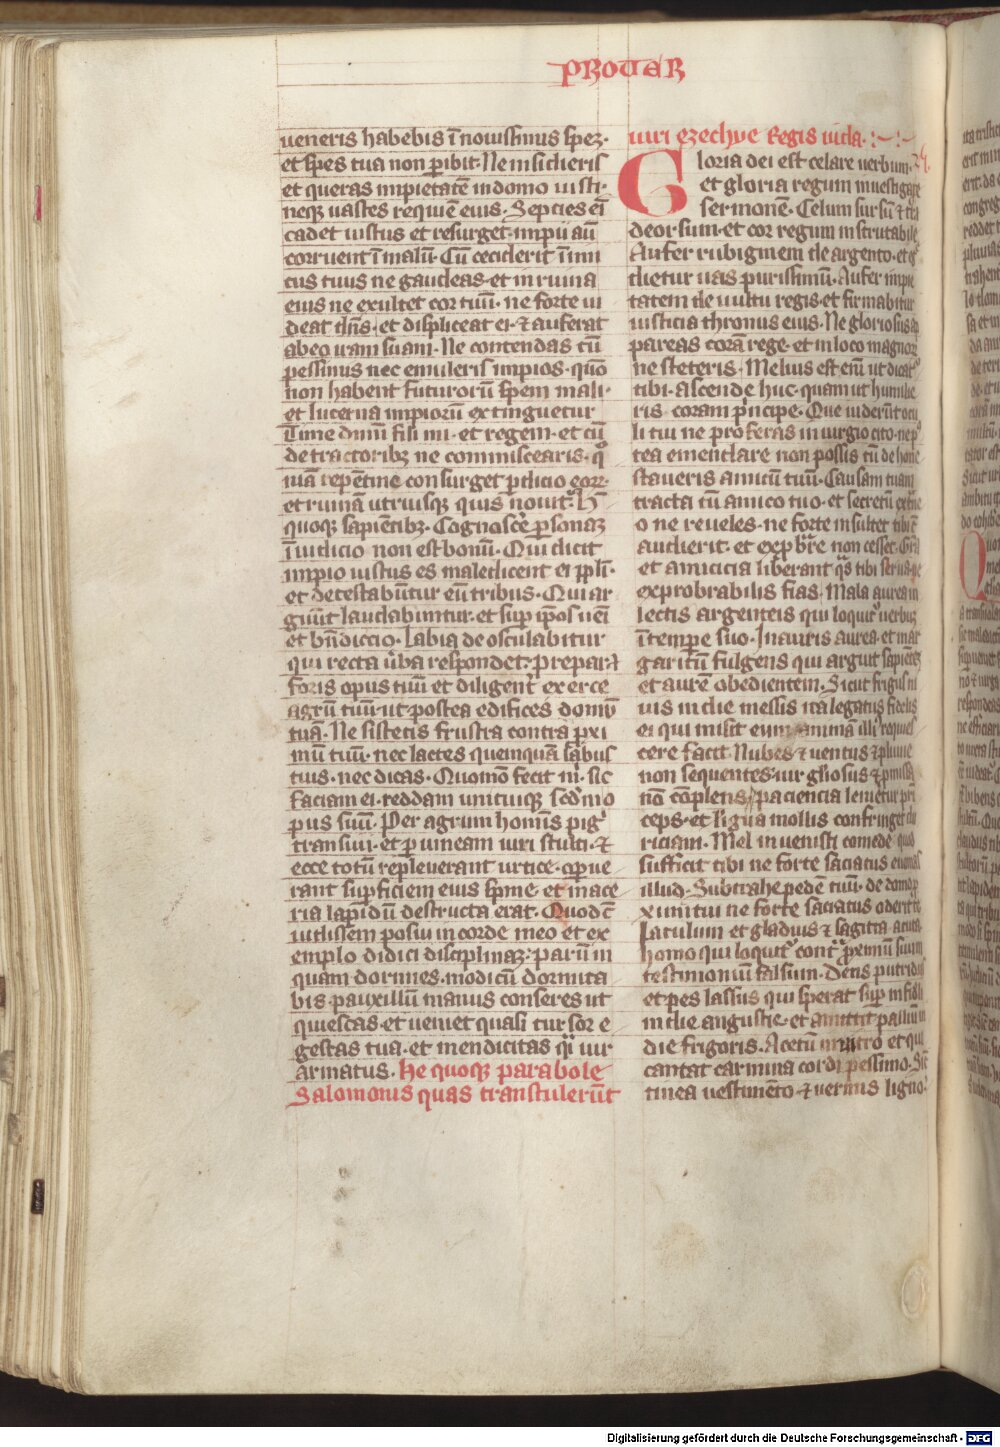 PROUER
ueneris habebis ī nouissimis spez·
et spes tua non ꝑibit· Ne insidieris
et queras impietatē in domo iusti·
neqꝫ uastes requiē eius· Septies eī
cadet iustus et resurget· impii aū
corruent ī malū· Cū ceciderit īimi
cus tuus ne gaudeas· et in ruina
eius ne exultet cor tuū· ne forte ui
deat dn̄s· et displiceat ei· ⁊ auferat
abeo iram suam· Ne contendas cū
pessimis nec emuleris impios· quō
non habent futurorū spem mali·
et lucerna impiorū extinguetur
Time dn̄m fili mi· et regem· et cū
detractoribꝫ ne commiscearis· qm̄
iuā repentine consurget ꝑdicio eoꝝ·
et ruinā utriusqꝫ quis nouit· H̄
quoqꝫ sapientibꝫ· Cognoscē ꝑsonaꝫ
ī iudicio non est bonū· Qui dicit
impio iustus es maledicent ei ppl̄i·
et detestabūtur eū tribus· Qui ar
guūt laudabuntur· et suꝑ ipos ueī
et bn̄diccio· Labia deosculabitur
qui recta u̇ba respondet· prepara
foris opus tuū et diligent̄ exerce
agrū tuū· ut postea edifices domū
tuā· Ne sis testis frustra contra ꝓxi
mū tuū· nec lactes quemquā labiis
tuis· nec dicas· Quomō fecit m̄· sic
faciam ei· reddam unicuiqꝫ scd̄m o
pus suū· Per agrum hominis pigri
transiui· et ꝑ uineam uiri stulti· ⁊
ecce totū repleuerant urtice· oꝑue
rant suꝑficiem eius spine· et mace
ria lapidū destructa erat· Quod c̄
uidissem posui in corde meo et ex
emplo didici disciplinaꝫ· parū in
quam dormies· modicū dormita
bis· pauxillū manus conseres ut
quiescas· et ueniet quasi cursor e
gestas tua· et mendicitas qͣi uir
armatus· he quoqꝫ parabole
Salomonis quas transtulerūt
uiri ezechye Regis iuda·
Gloria dei est celare uerbum·
et gloria regum inuestigare
sermonē· Celum sursū ⁊ tr̄a
deorsum· et cor regum inscrutabile
Aufer rubiginem de argento· et eḡ
dietur uas purissimū· Aufer impie
tatem de uultu regis· et firmabitur
iusticia thronus eius· Ne gloriosus ap
pareas corā rege· et in loco magnoꝝ
ne steteris· Melius est enī ut dicat᷑
tibi· ascende huc· quam ut humilie
ris coram pͥncipe· Que uiderūt ocu
li tui ne proferas in iurgio cito· ne pꝰ
tea emendare non possis cū dehone
staueris amicū tuū· Causam tuam
tracta cū amico tuo· et secretū extͣne
o ne reueles· ne forte insultet tibi c̄
audierit· et exprob̄re non cesset· Grā
et amicicia liberant qͣs tibi serua· ne
exprobrabilis fias· Mala aurea in
lectis argenteis qui loquit᷑ uerbuꝫ
ī tempore suo· Inauris aurea· et mar
garitū fulgens qui arguit sapientē
et aurē obedientem· Sicut frigus ni
uis in die messis ita legatus fidelis
ei qui misit eum· animā illiꝰ reques
cere facit· Nubes ⁊ uentus ⁊ pluuie
non sequentes· uir gl̄iosus ⁊ ꝓmissa
nō cōplens· paciencia lenietur pͥn
ceps· et ligua mollis confringet du
riciam· Mel inuenisti comede quod
sufficit tibi ne forte saciatus euomas
illud· Subtrahe pedē tuū· de domo ꝓ
ximi tui ne forte saciatus oderit te
Iaculum et gladius ⁊ sagitta acuta
homo qui loquit᷑ contͣ ꝓximū suum
testimoniū falsum· Dens putridus
et pes lassus qui sperat suꝑ infideli
in die angustie· et amittit pallium in
die frigoris· Acetū in nitro et qui
cantat carmina cordi pessimo· Sic̄
tinea uestimēto· ⁊ uermis ligno·
Digitalisierung gefördert durch die Deutsche Forschungsgemeinschaft - DFG